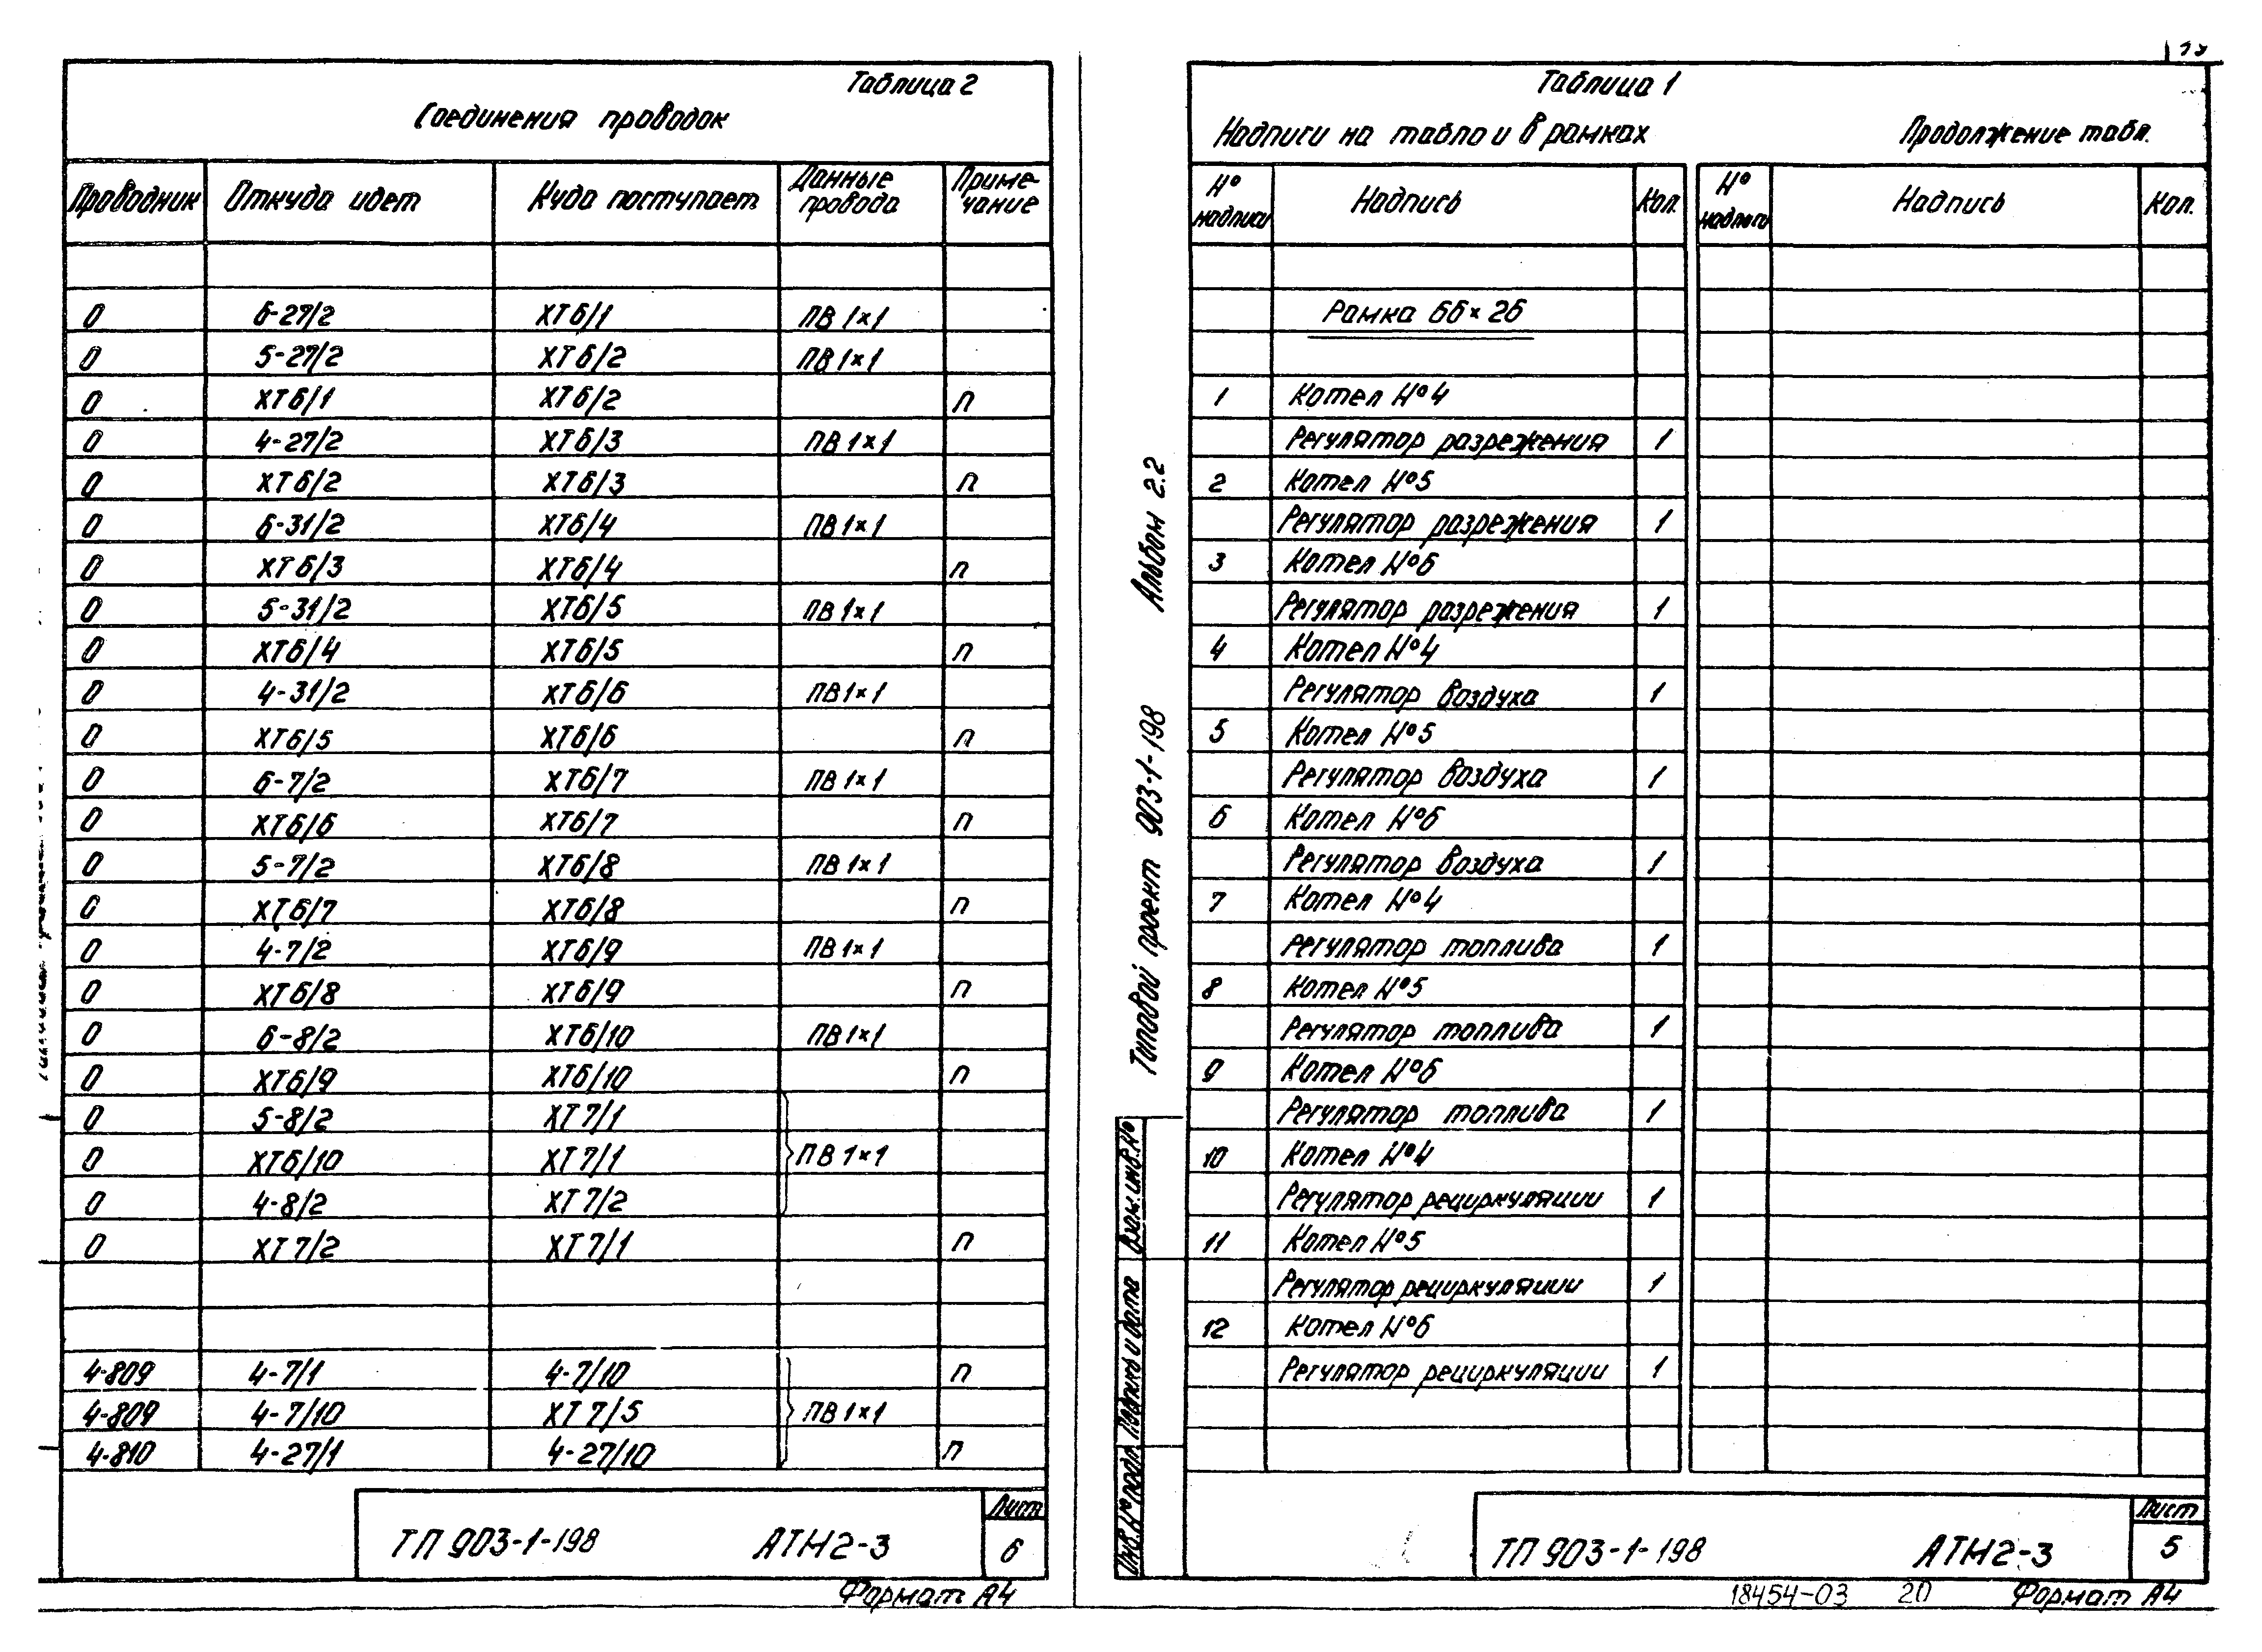 Таблица 2
Соединения проводок
Проводник Откуда идет Куда поступает Данные провода Приме-чание
0 6-27/2 ХТ6/1 ПВ 1×1
0 5-27/2 ХТ6/2 ПВ 1×1
0 ХТ6/1 ХТ6/2 п
0 4-27/2 ХТ6/3 ПВ 1×1
0 ХТ6/2 ХТ6/3 п
0 6-31/2 ХТ6/4 ПВ 1×1
0 ХТ6/3 ХТ6/4 п
0 5-31/2 ХТ6/5 ПВ 1×1
0 ХТ6/4 ХТ6/5 п
0 4-31/2 ХТ6/6 ПВ 1×1
0 ХТ6/5 ХТ6/6 п
0 6-7/2 ХТ6/7 ПВ 1×1
0 ХТ6/6 ХТ6/7 п
0 5-7/2 ХТ6/8 ПВ 1×1
0 ХТ6/7 ХТ6/8 п
0 4-7/2 ХТ6/9 ПВ 1×1
0 ХТ6/8 ХТ6/9 п
0 6-8/2 ХТ6/10 ПВ 1×1
0 ХТ6/9 ХТ6/10 п
0 5-8/2 ХТ7/1
0 ХТ6/10 ХТ7/1 ПВ 1×1
0 4-8/2 ХТ7/2
0 ХТ7/2 ХТ7/1 п
4-809 4-7/1 4-7/10 п
4-809 4-7/10 ХТ7/5 ПВ 1×1
4-810 4-27/1 4-27/10 п
ТП 903-1-198 АТМ2-3
Лист
6
Формат А4
Альбом 2.2
Типовой проект 903-1-198
Взам. инв. №
Подпись и дата
Инв. № подл
Таблица 1
Надписи на табло и в рамках
Продолжение табл.
№ надписи Надпись Кол. № надписи Надпись Кол.
Рамка 66×26
1 Котел №4
Регулятор разрежения 1
2 Котел №5
Регулятор разрежения 1
3 Котел №6
Регулятор разрежения 1
4 Котел №4
Регулятор воздуха 1
5 Котел №5
Регулятор воздуха 1
6 Котел №6
Регулятор воздуха 1
7 Котел №4
Регулятор топлива 1
8 Котел №5
Регулятор топлива 1
9 Котел №6
Регулятор топлива 1
10 Котел №4
Регулятор рециркуляции 1
11 Котел №5
Регулятор рециркуляции 1
12 Котел №6
Регулятор рециркуляции 1
ТП 903-1-198 АТМ2-3
Лист
5
18454-03 20 Формат А4